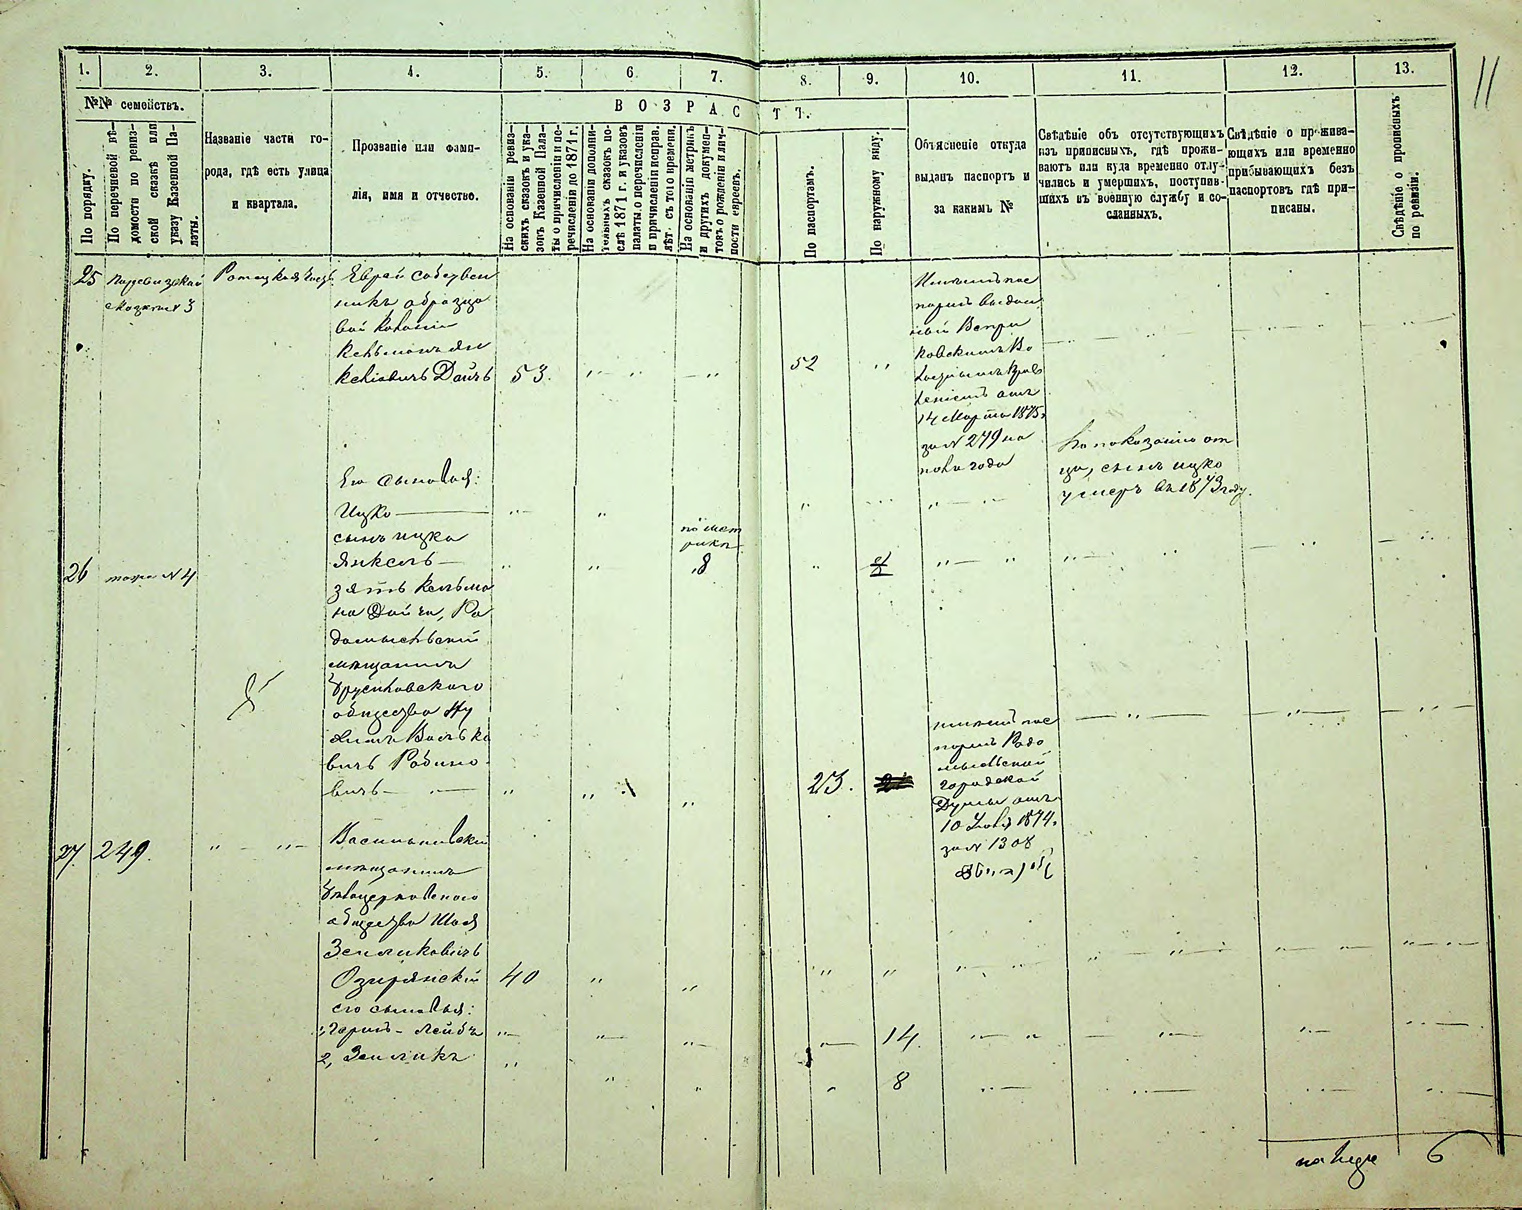 11
1. 2. 3. 4. 5. 6. 7. 8. 9. 10. 11. 12. 13.
№№ семействъ.
ВОЗРАСТЪ.
По порядку.
По перечневой вѣ-
домости по ревиз-
ской сказкѣ или
указу Казенной Па-
латы.
Названіе части го-
рода, гдѣ есть улица
и квартала.
Прозваніе или фами-
лія, имя и отчество.
На основаніи ревиз-
скихъ сказокъ и ука-
зовъ Казенной Пала-
ты о причисленіи и пе-
речисленіи до 1871 г.
На основаніи дополни-
тельныхъ сказокъ по-
слѣ 1871 г. и указовъ
палаты, о перечисленіи
и причисленіи неправ.
лѣт. съ того времени.
На основаніи метрикъ
и другихъ докумен-
товъ о рожденіи и лич-
ности евреевъ.
По паспортамъ.
По наружному виду.
Объясненіе откуда
выданъ паспортъ и
за какимъ №
Свѣдѣніе объ отсутствующихъ
изъ приписныхъ, гдѣ прожи-
ваютъ или куда временно отлу-
чились и умершихъ, поступив-
шихъ въ военную службу и со-
сланныхъ.
Свѣдѣніе о прожива-
ющихъ или временно
прибывающихъ безъ
паспортовъ гдѣ при-
писаны.
Свѣдѣніе о прописныхъ
по ревизіи.
25
№ 3
Еврей собствен
никъ образцо
вой колоніи
Кельманъ Ян
келіовичъ Дайчъ 53. 52
Имѣетъ пас
портъ выдан
ный
14 Марта 1875 г.
за № 279 на
пола года
Его сыновья:
Ицко
По показанію от
ца, сынъ Ицко
умеръ въ 1873 году.
сынъ Ицка
Янкель
по мет
рикѣ
8
26 тоже № 4
зять Кельма
на Дайча, Ра
домысльскій
мѣщанинъ
Брусиловскаго
общества Ну
химъ Волько
вичъ Рабино
вичъ 23.
имѣетъ пас
портъ Радо
мысльской
городской
Думы отъ
10 1874 г.
за № 1308
27 249.
Васильковскій
мѣщанинъ
Бѣлоцерковскаго
общества Шая
Зеликовичъ
Озирянскій 40
его сыновья:
1, Герш-Лейбъ 14.
2, Зеликъ 8
6